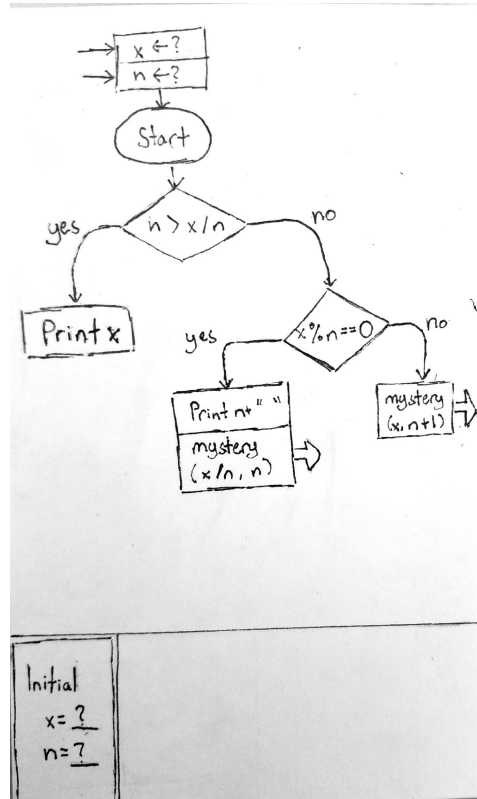 x ← ?
n ← ?
Start
n > x/n
yes
no
Print x
x%n==0
yes
no
Print n+ " "
mystery
(x/n, n)
mystery
(x, n+1)
Initial
x= ?
n= ?